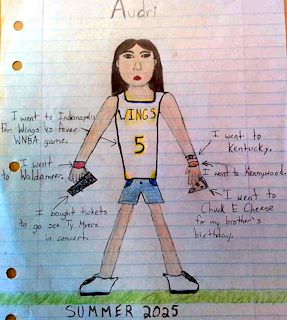 Audri
I went to Indianapolis
for Wings vs Fever
WNBA game.
WINGS
5
I went to
Kentucky.
I went
to Waldameer.
I went to Kennywood.
I bought tickets
to go see Ty Myers
in concert.
I went to
Chuck E Cheese
for my brother's
birthday.
SUMMER 2025